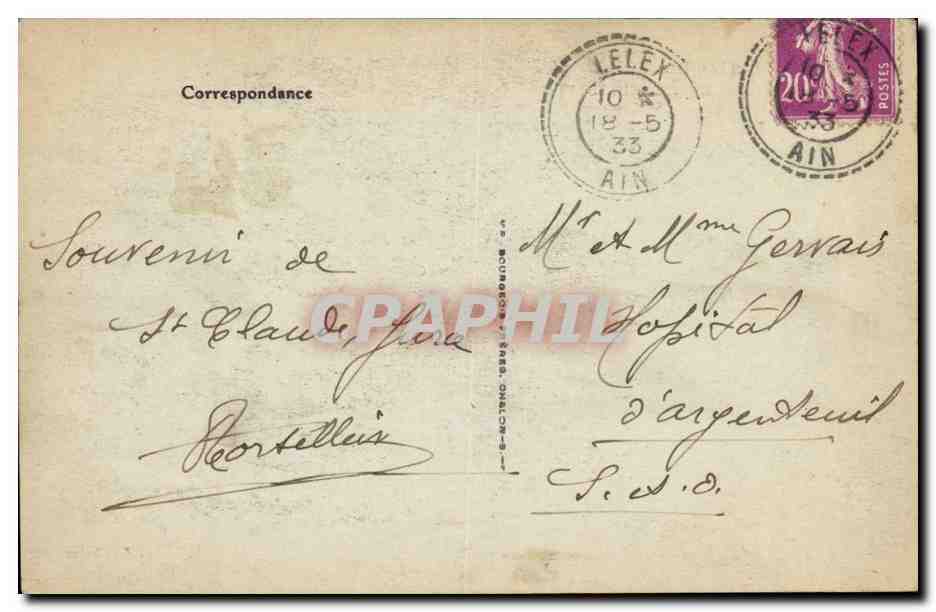 Correspondance
LELEX
10 *
18 - 5
33
AIN
LELEX
10 *
- 5
33
AIN
20
POSTES
Souvenir de
St Claude, Jura
Mr et Mme Gervais
Hopital
d'argenteuil
S. et O.
BOURGEOIS FRÈRES, CHALON-S.-
CPAPHIL